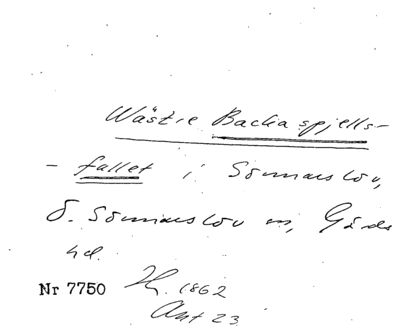 Wästre Backaspjells-
- fallet i Sönnarslöv,
Ö. Sönnarslöv sn, Gärds
hd.
Nr 7750 H. 1862
Ant 23